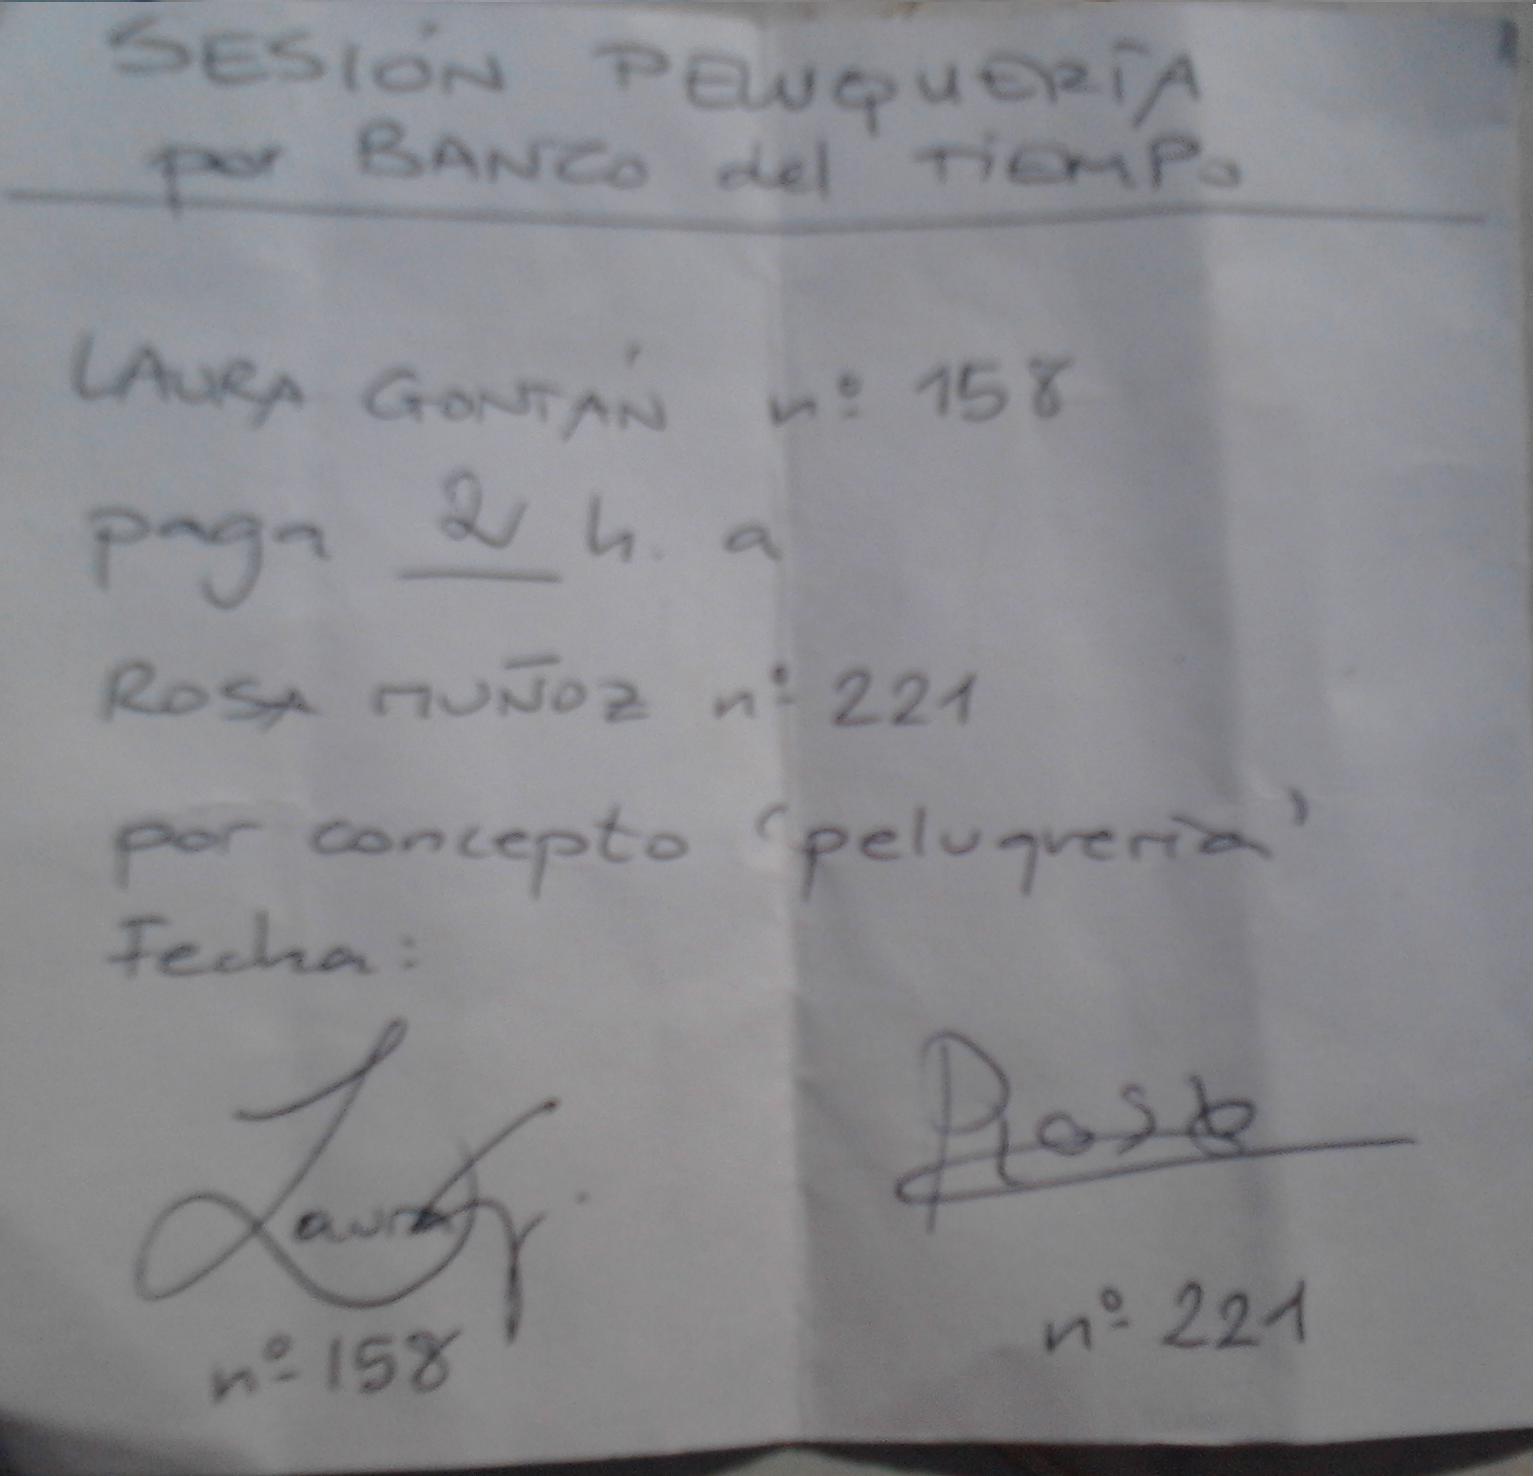 SESIÓN PELUQUERÍA
por BANCO del TIEMPO
LAURA GONTÁN nº 158
paga 2 h. a
ROSA MUÑOZ nº 221
por concepto 'peluquería'
Fecha:
Laura
Rosa
nº 158
nº 221